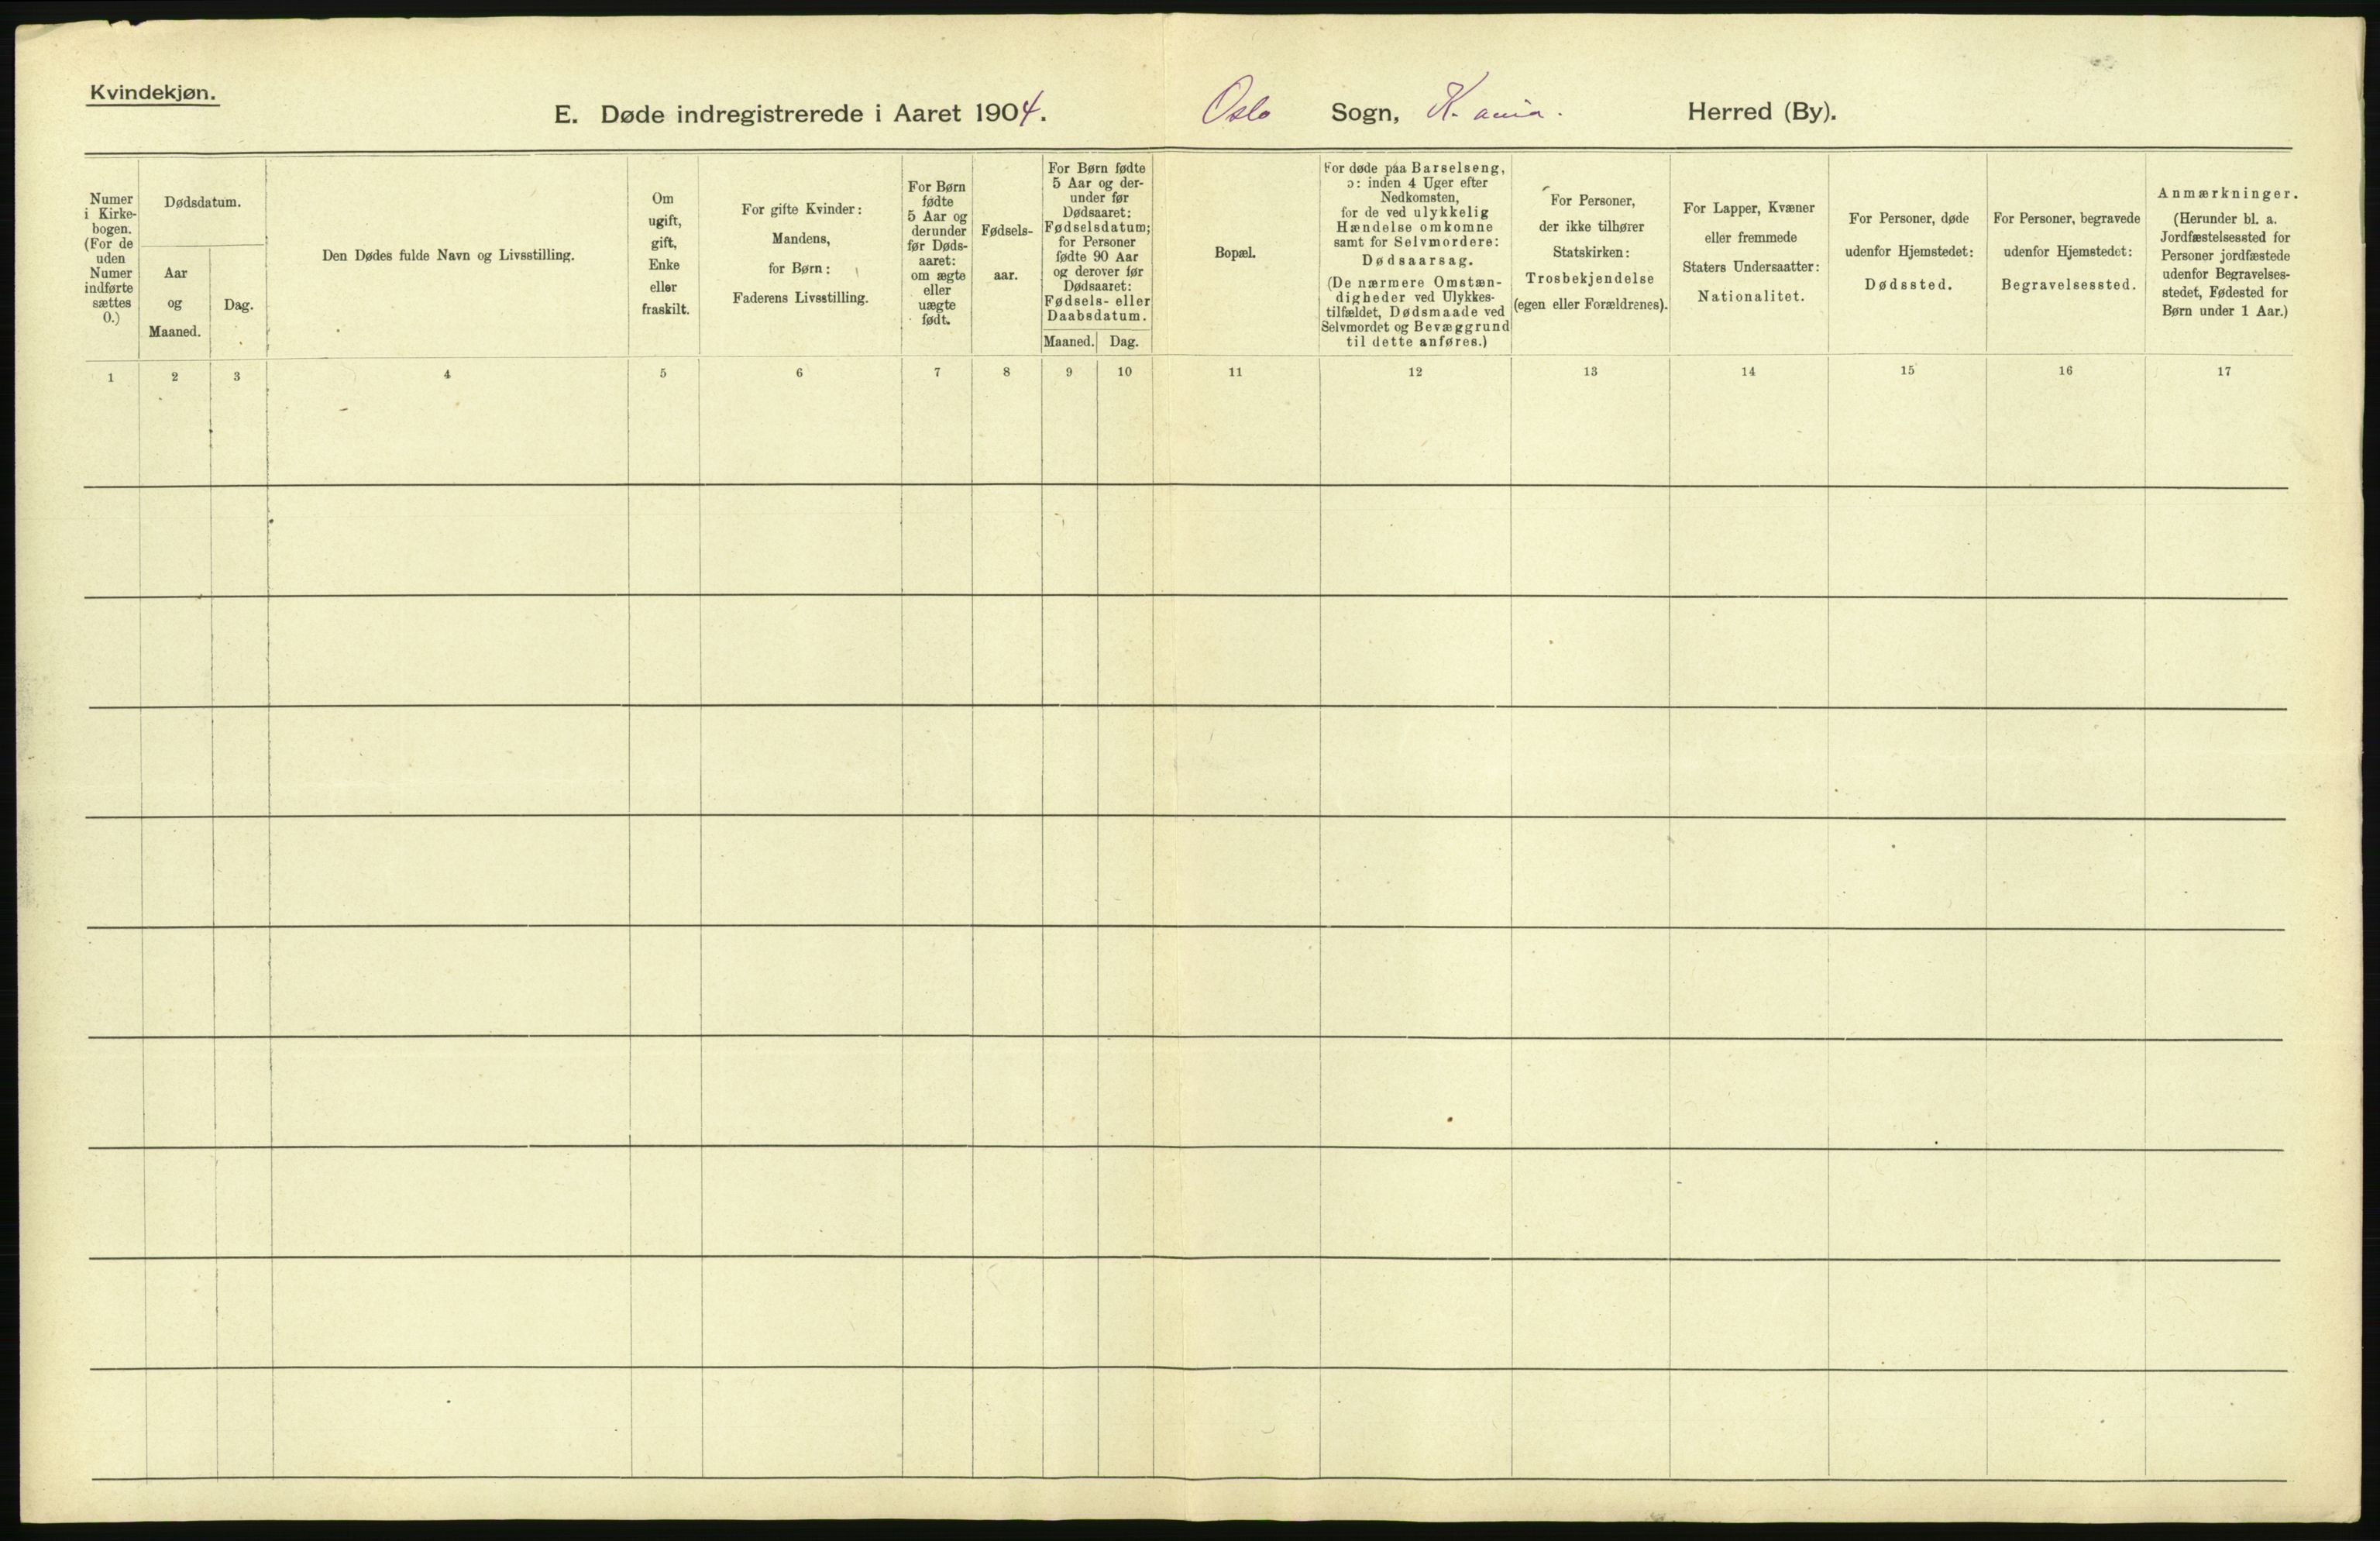 Kvindekjøn.
E. Døde indregistrerede i Aaret 1904. Oslo Sogn, K. ania. Herred (By).
Numer
i Kirke-
bogen.
(For de
uden
Numer
indførte
sættes
0.)
Dødsdatum.
Aar
og
Maaned.
Dag.
Den Dødes fulde Navn og Livsstilling.
Om
ugift,
gift,
Enke
eller
fraskilt.
For gifte Kvinder:
Mandens,
for Børn:
Faderens Livsstilling.
For Børn
fødte
5 Aar og
derunder
før Døds-
aaret:
om ægte
eller
uægte
født.
Fødsels-
aar.
For Børn fødte
5 Aar og der-
under før
Dødsaaret:
Fødselsdatum;
for Personer
fødte 90 Aar
og derover før
Dødsaaret:
Fødsels- eller
Daabsdatum.
Maaned. Dag.
Bopæl.
For døde paa Barselseng,
ɔ: inden 4 Uger efter
Nedkomsten,
for de ved ulykkelig
Hændelse omkomne
samt for Selvmordere:
Dødsaarsag.
(De nærmere Omstæn-
digheder ved Ulykkes-
tilfældet, Dødsmaade ved
Selvmordet og Bevæggrund
til dette anføres.)
For Personer,
der ikke tilhører
Statskirken:
Trosbekjendelse
(egen eller Forældrenes).
For Lapper, Kvæner
eller fremmede
Staters Undersaatter:
Nationalitet.
For Personer, døde
udenfor Hjemstedet:
Dødssted.
For Personer, begravede
udenfor Hjemstedet:
Begravelsessted.
Anmærkninger.
(Herunder bl. a.
Jordfæstelsessted for
Personer jordfæstede
udenfor Begravelses-
stedet, Fødested for
Børn under 1 Aar.)
1 2 3 4 5 6 7 8 9 10 11 12 13 14 15 16 17